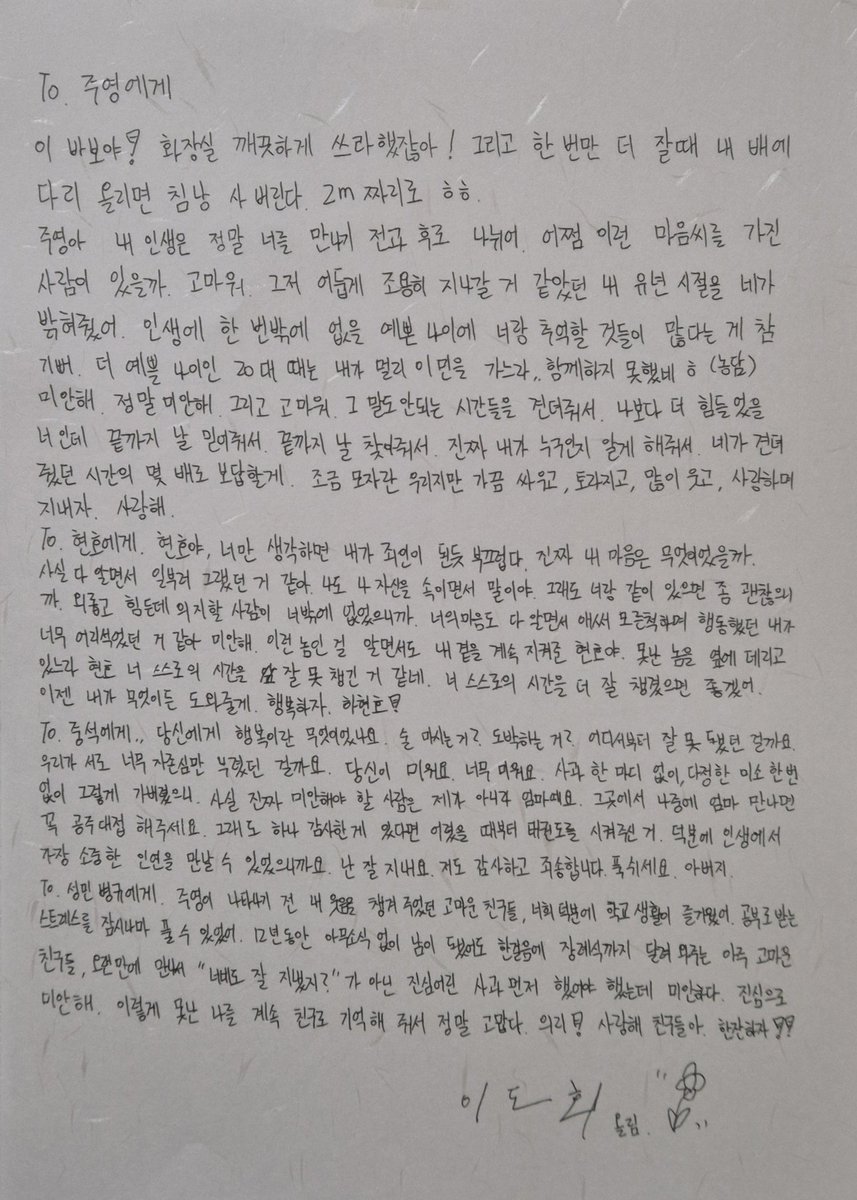 To. 주영에게
이 바보야! 화장실 깨끗하게 쓰라 했잖아! 그리고 한 번만 더 잘때 내 배에
다리 올리면 침낭 사 버린다. 2m 짜리로 ㅎㅎ.
주영아 내 인생은 정말 너를 만나기 전과 후로 나뉘어. 어쩜 이런 마음씨를 가진
사람이 있을까. 고마워. 그저 어둡게 조용히 지나갈 거 같았던 내 유년 시절을 네가
밝혀줬어. 인생에 한 번밖에 없을 예쁜 나이에 너랑 추억할 것들이 많다는 게 참
기뻐. 더 예쁠 나이인 20대 때는 내가 멀리 이민을 가느라.. 함께하지 못했네 ㅎ (농담)
미안해. 정말 미안해. 그리고 고마워. 그 말도 안되는 시간들을 견뎌줘서. 나보다 더 힘들었을
너인데 끝까지 날 믿어줘서. 끝까지 날 찾아줘서. 진짜 내가 누구인지 알게 해줘서. 네가 견뎌
줬던 시간의 몇 배로 보답할게. 조금 모자란 우리지만 가끔 싸우고, 토라지고, 많이 웃고, 사랑하며
지내자. 사랑해.
To. 현호에게. 현호야, 너만 생각하면 내가 죄인이 된듯 부끄럽다. 진짜 내 마음은 무엇이었을까.
사실 다 알면서 일부러 그랬던 거 같아. 나도 나 자신을 속이면서 말이야. 그래도 너랑 같이 있으면 좀 괜찮으니
까. 외롭고 힘든데 의지할 사람이 너밖에 없었으니까. 너의마음도 다 알면서 애써 모른척하며 행동했던 내가
너무 어리석었던 거 같아 미안해. 이런 놈인 걸 알면서도 내 곁을 계속 지켜준 현호야. 못난 놈을 옆에 데리고
있느라 현호 너 스스로의 시간을 잘 못 챙긴 거 같네. 너 스스로의 시간을 더 잘 챙겼으면 좋겠어.
이젠 내가 무엇이든 도와줄게. 행복하자. 하현호!
To. 중석에게.. 당신에게 행복이란 무엇이었나요. 술 마시는 거? 도박하는 거? 어디서부터 잘 못 됐던 걸까요.
우리가 서로 너무 자존심만 부렸던 걸까요. 당신이 미워요. 너무 미워요. 사과 한 마디 없이, 다정한 미소 한 번
없이 그렇게 가버렸으니. 사실 진짜 미안해야 할 사람은 제가 아니라 엄마예요. 그곳에서 나중에 엄마 만나면
꼭 공주대접 해주세요. 그래도 하나 감사한 게 있다면 어렸을 때부터 태권도를 시켜주신 거. 덕분에 인생에서
가장 소중한 인연을 만날 수 있었으니까요. 난 잘 지내요. 저도 감사하고 죄송합니다. 푹 쉬세요. 아버지.
To. 성민 병규에게. 주영이 나타나기 전 내 웃음을 챙겨 주었던 고마운 친구들, 너희 덕분에 학교 생활이 즐거웠어. 공부로 받는
스트레스를 잠시나마 풀 수 있었어. 12년동안 아무소식 없이 남이 됐어도 한걸음에 장례식까지 달려 와주는 아주 고마운
친구들, 오랜만에 만나서 "너네도 잘 지냈지?"가 아닌 진심어린 사과 먼저 했어야 했는데 미안하다. 진심으로
미안해. 이렇게 못난 나를 계속 친구로 기억해 줘서 정말 고맙다. 의리! 사랑해 친구들아. 한잔하자!!
이도회 올림.